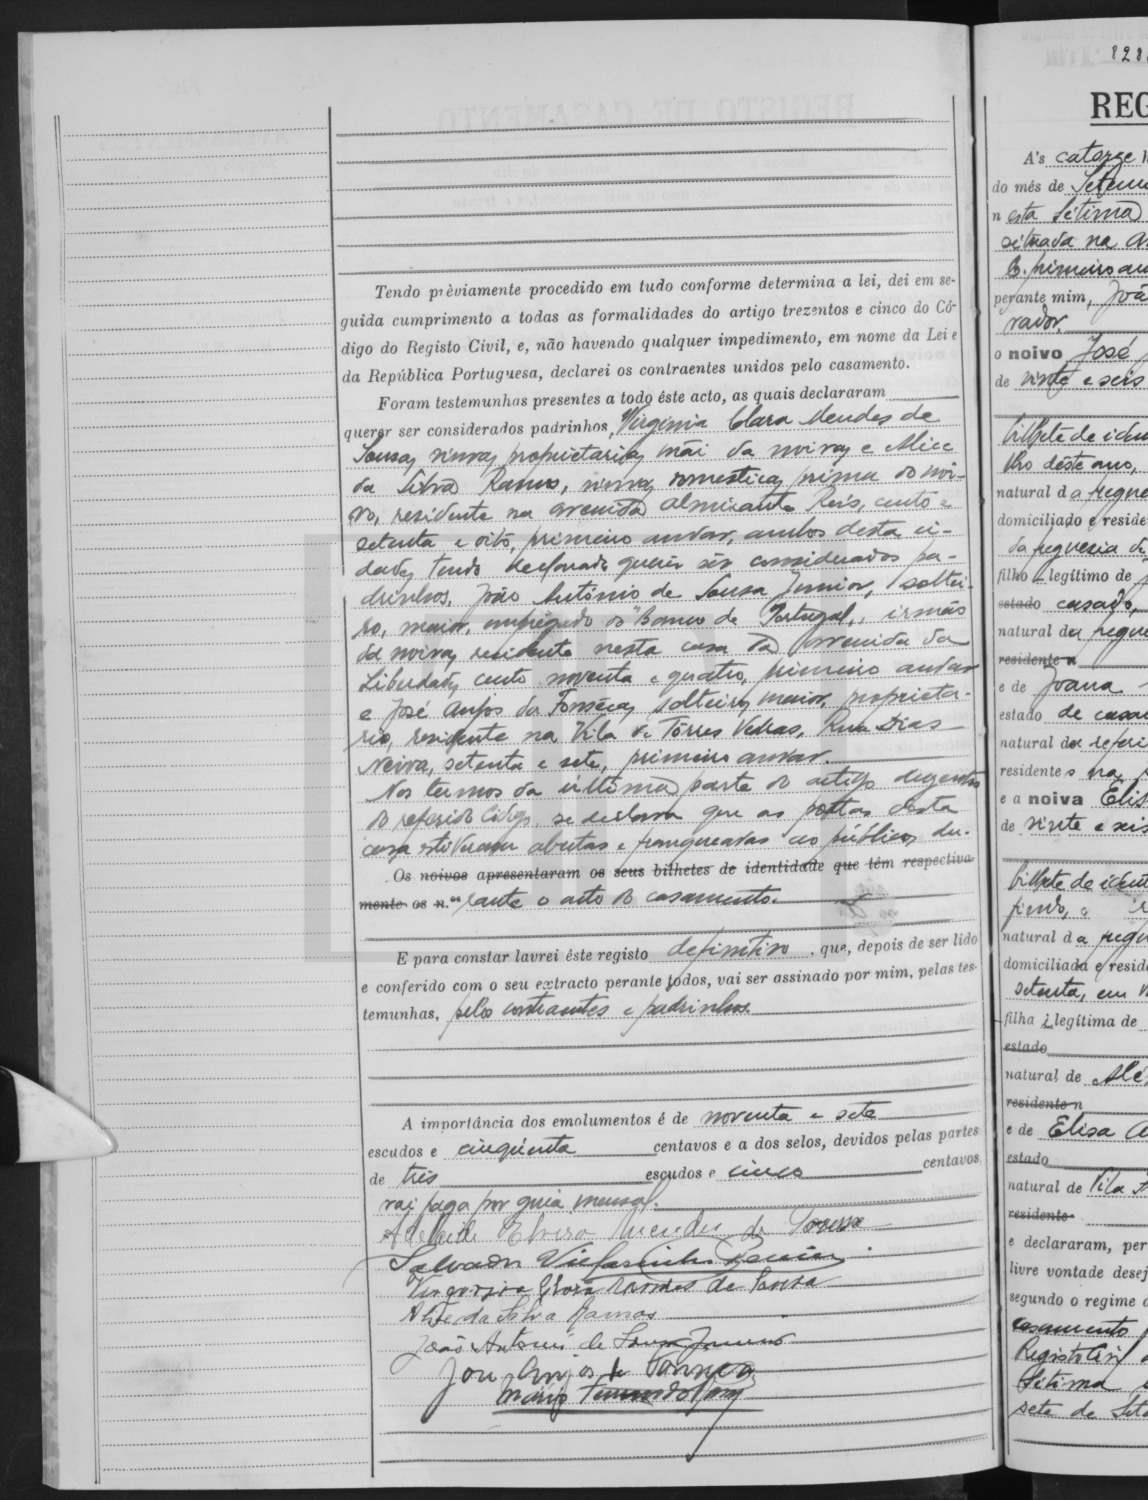 Tendo prèviamente procedido em tudo conforme determina a lei, dei em se-
guida cumprimento a todas as formalidades do artigo trezentos e cinco do Có-
digo do Registo Civil, e, não havendo qualquer impedimento, em nome da Lei e
da República Portuguesa, declarei os contraentes unidos pelo casamento.
Foram testemunhas presentes a todo éste acto, as quais declararam
querer ser considerados padrinhos, Virginia Clara Mendes de
Sousa, viuva, proprietaria, mãi da noiva, e Alice
da Silva Ramos, viuva, domestica, prima do noi-
vo, residente na avenida Almirante Reis, cento e
setenta e oito, primeiro andar, ambos desta ci-
dade, tendo declarado querer ser considerados pa-
drinhos, João António de Sousa Junior, soltei-
ro, maior, empregado do "Banco de Portugal", irmão
da noiva, residente nesta casa da Avenida da
Liberdade, cento noventa e quatro, primeiro andar
e José Anjos da Fonseca, solteiro, maior, proprieta-
rio, residente na Vila de Tôrres Vedras, Rua Dias
Neiva, setenta e sete, primeiro andar.
Nos termos da ultima parte do artigo duzentos
do referido Codigo, se declara que as portas desta
casa estiveram abertas e franqueadas ao público, du-
Os noivos apresentaram os seus bilhetes de identidade que têm respectiva-
mente os n.os rante o acto do casamento.
E para constar lavrei éste registo definitivo, que, depois de ser lido
e conferido com o seu extracto perante todos, vai ser assinado por mim, pelas tes-
temunhas, pelos contraentes e padrinhos.
A importância dos emolumentos é de noventa e sete
escudos e cinqüenta centavos e a dos selos, devidos pelas partes
de três escudos e cinco centavos
vai paga por guia mensal.
Adelaide Elvira Mendes de Sousa
Salvador
Virginia Clara Mendes de Sousa
Alice da Silva Ramos
João Antonio de Sousa Junior
José Anjos da Fonseca
Mário
828
REG
A's catorze h
do mês de Setem
n esta Sétima
situada na
B. primeiro an
perante mim, Joã
rador,
o noivo José
de vinte e seis
bilhete de iden
lho déste ano,
natural da fregue
domiciliado e reside
da freguesia d
filho legítimo de
estado casado,
natural da fregue
residente n
e de Joana
estado de casa
natural da referi
residentes na
e a noiva Elis
de vinte e seis
bilhete de ident
findo,
natural da fregu
domiciliada e resid
setenta, em
filha ilegítima de
estado
natural de Ale
residente n
e de Elisa
estado
natural de Vila
residente
e declararam, per
livre vontade desej
segundo o regime
casamento
Registo Civil
Sétima
sete de Set